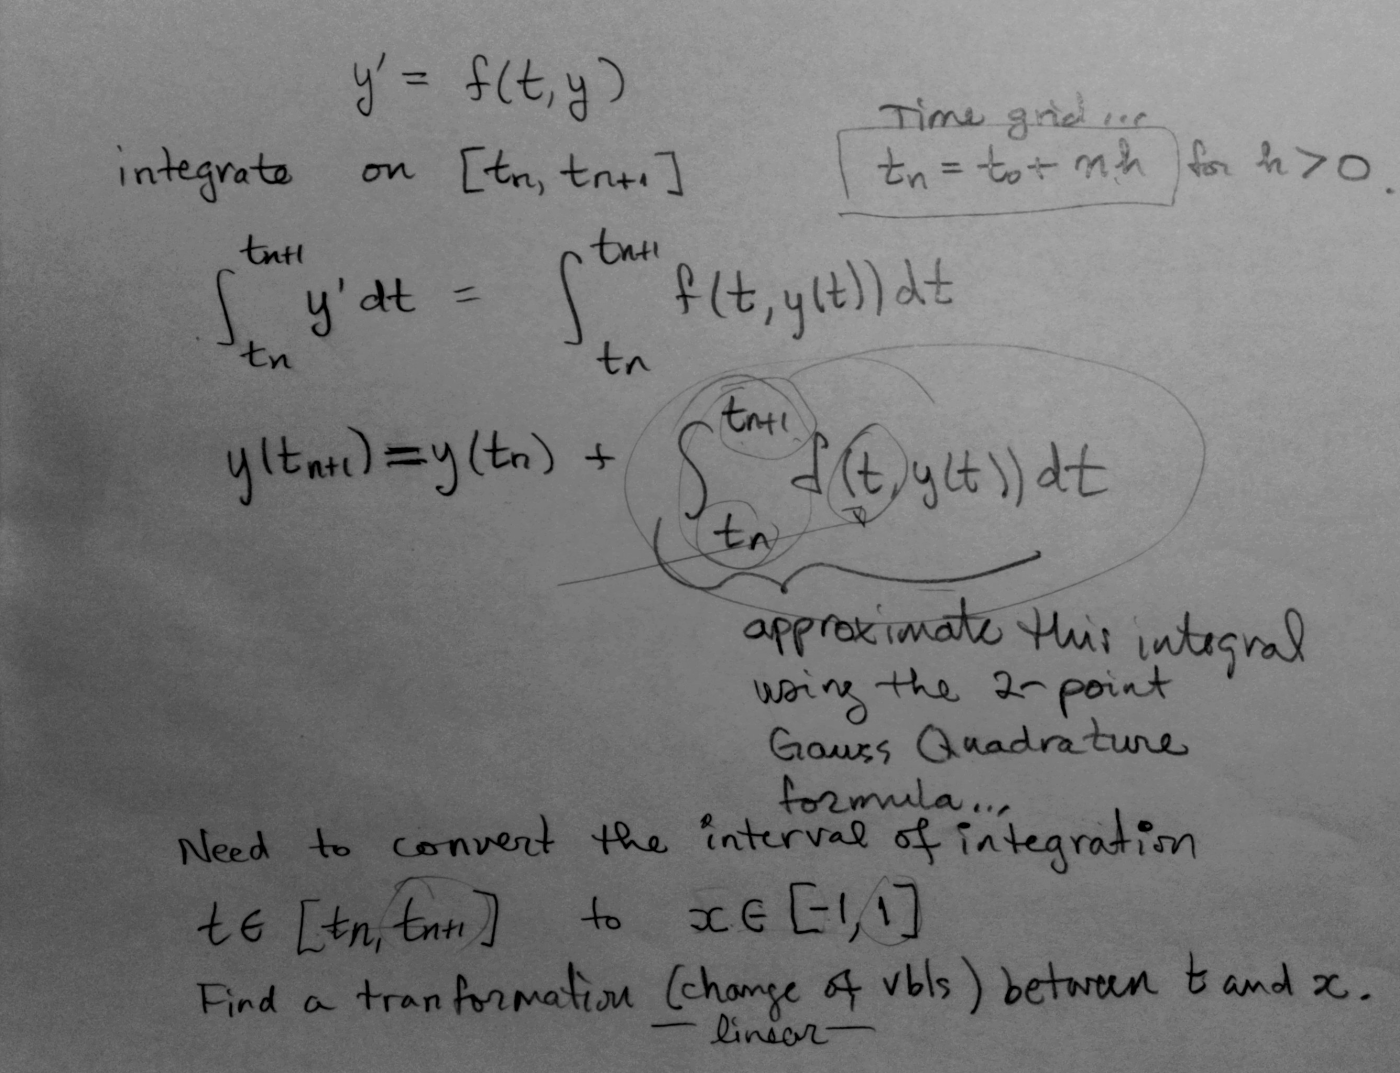 y' = f(t, y)
Time grid...
integrate on [tn, tn+1]
tn = t0 + nh for h > 0.
∫_{tn}^{tn+1} y' dt = ∫_{tn}^{tn+1} f(t, y(t)) dt
y(tn+1) = y(tn) + ∫_{tn}^{tn+1} f(t, y(t)) dt
approximate this integral
using the 2-point
Gauss Quadrature
formula...
Need to convert the interval of integration
t ∈ [tn, tn+1] to x ∈ [-1, 1]
Find a tranformation (change of vbls) between t and x.
— linear —